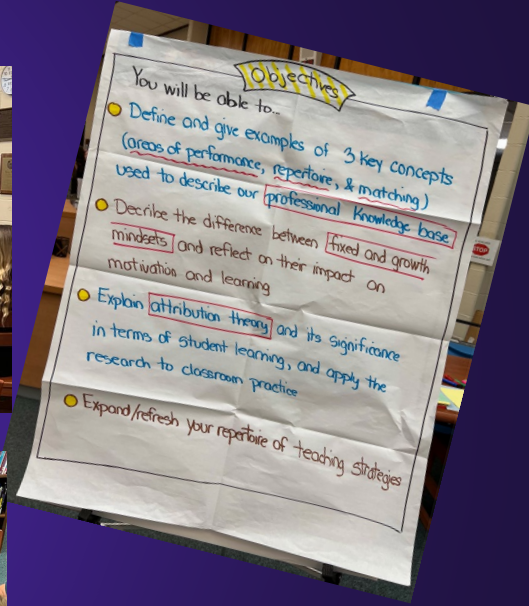 Objectives
You will be able to...
Define and give examples of 3 key concepts
(areas of performance, repertoire, & matching)
used to describe our professional knowledge base
Decribe the difference between fixed and growth
mindsets and reflect on their impact on
motivation and learning
Explain attribution theory and its significance
in terms of student learning, and apply the
research to classroom practice
Expand/refresh your repertoire of teaching strategies
STOP